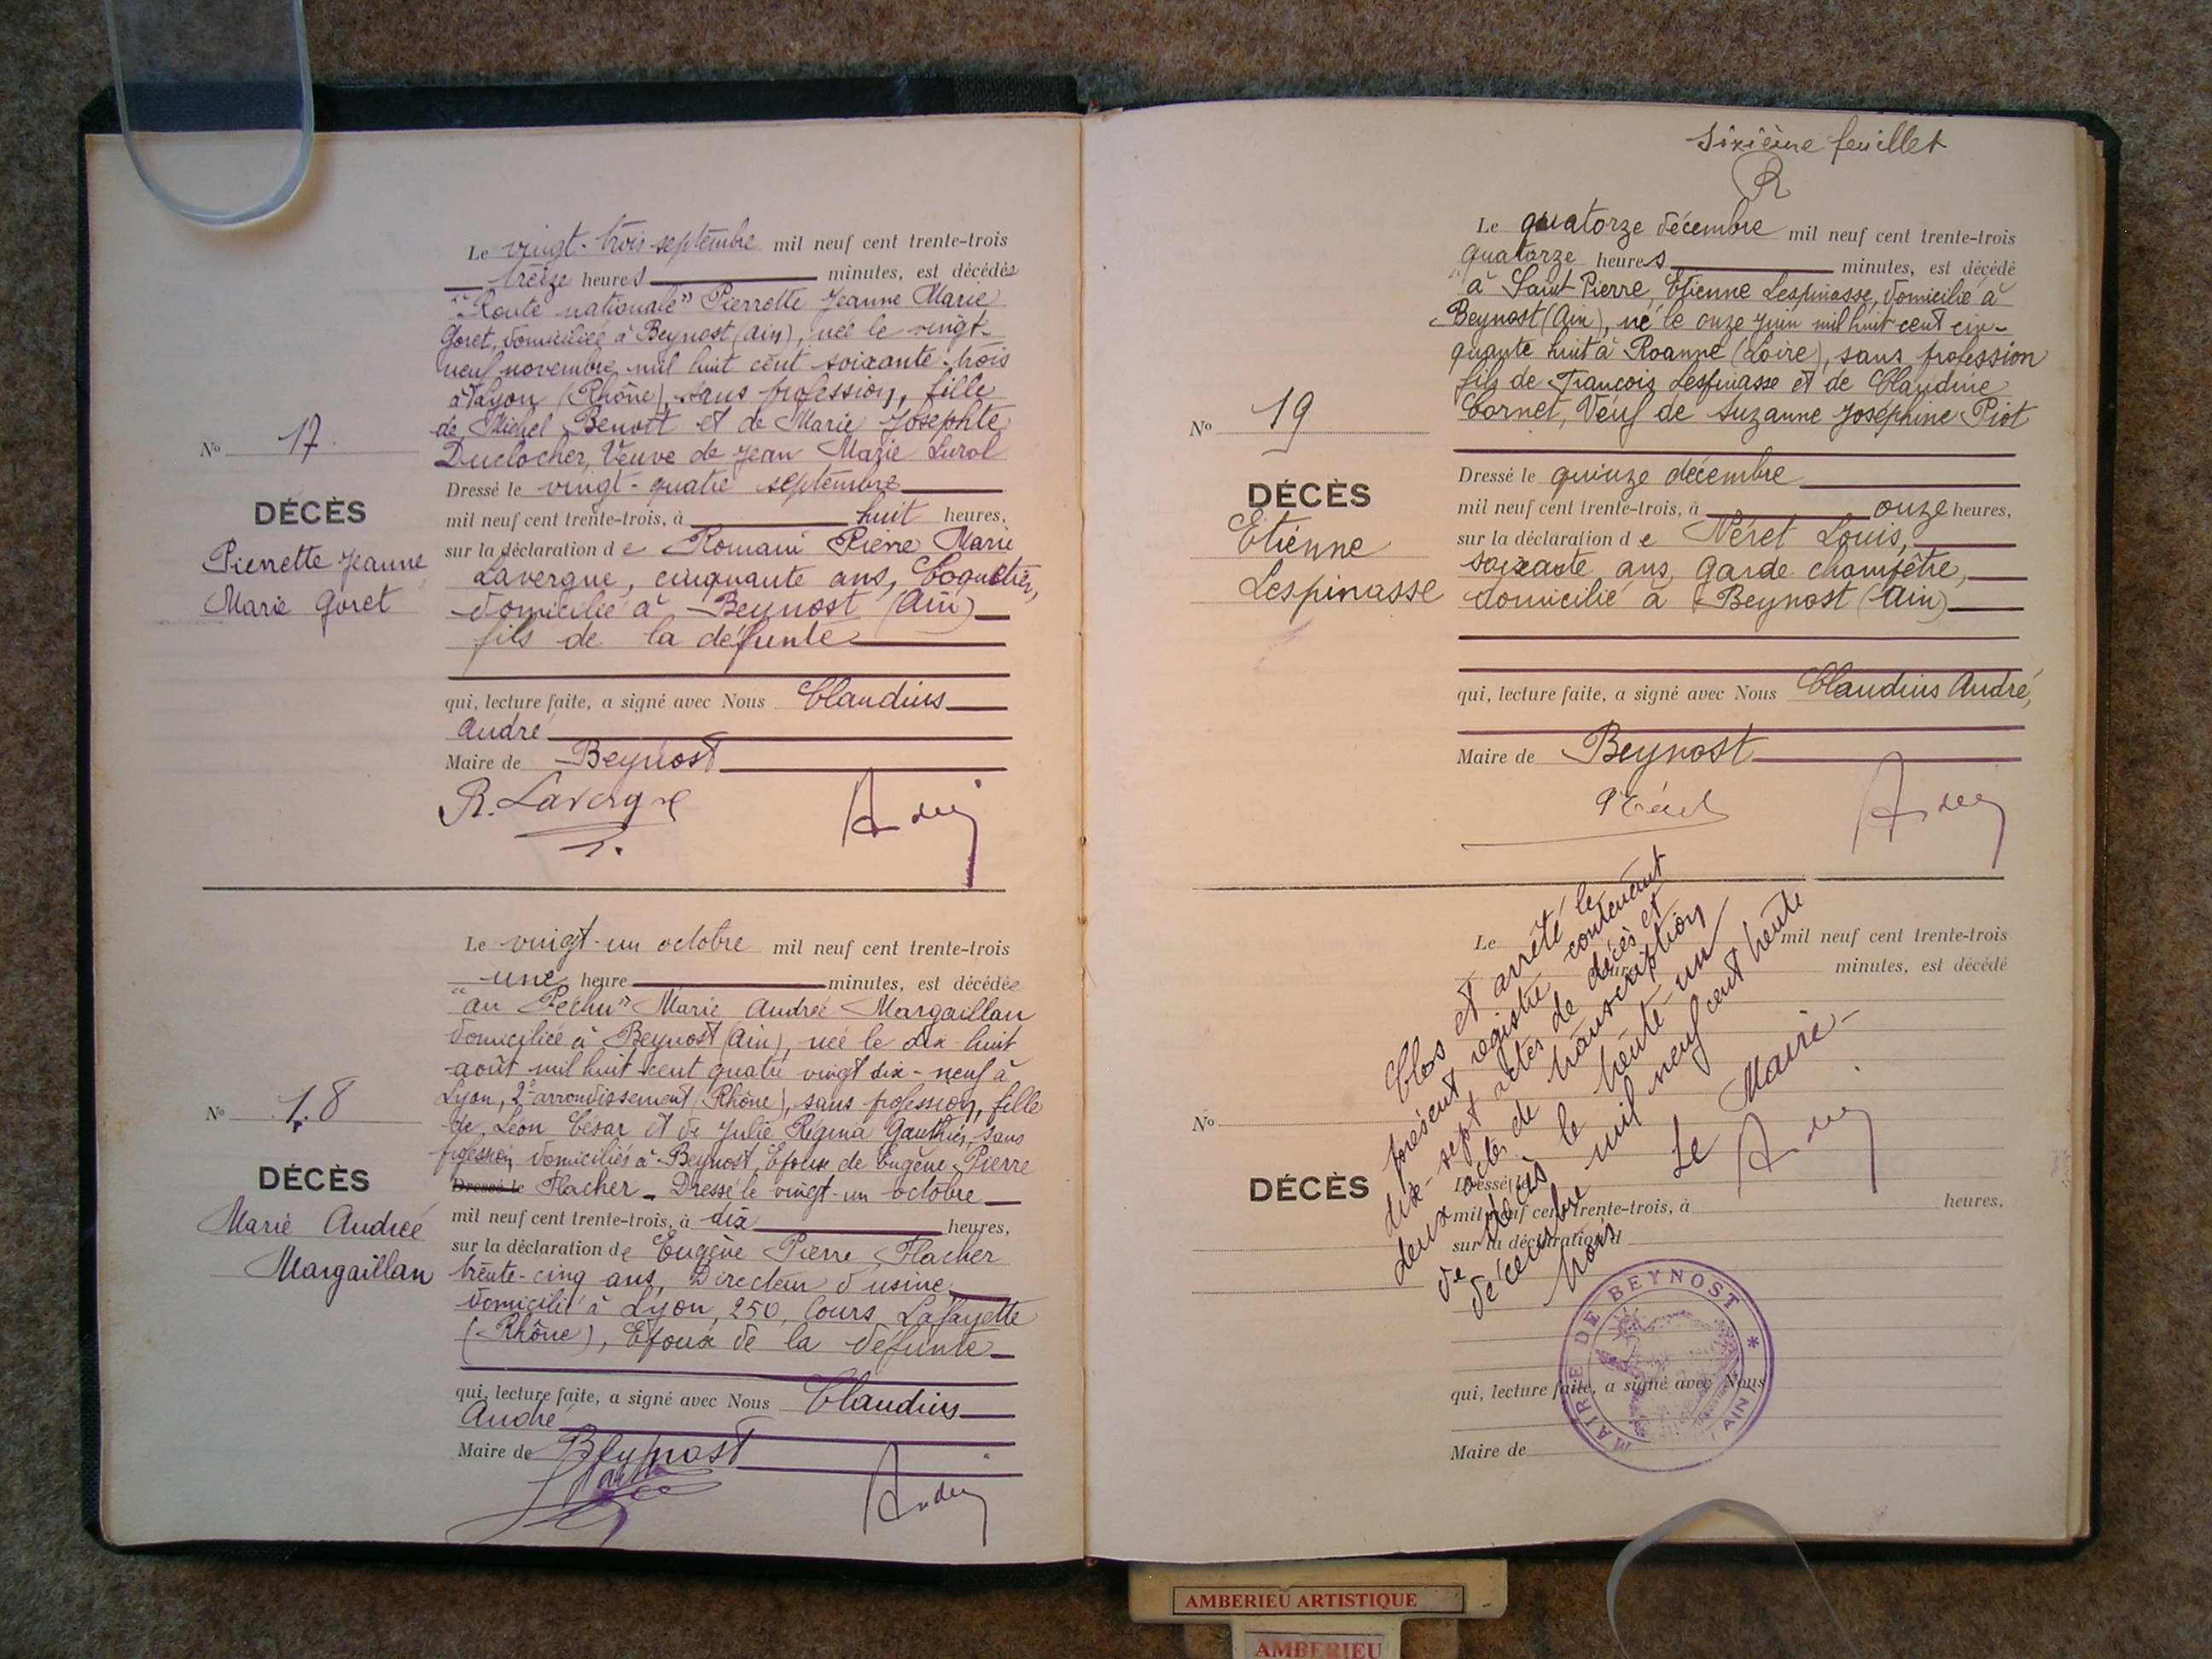 Le vingt-trois septembre mil neuf cent trente-trois
treize heures minutes, est décédée
"Route nationale" Pierrette Jeanne Marie
Goret, domiciliée à Beynost (Ain), née le vingt-
neuf novembre mil huit cent soixante-trois
à Lyon (Rhône), sans profession, fille
de Michel Benoît et de Marie Josephte
Duclocher, Veuve de Jean Marie Lurol
No 17
DÉCÈS
Pierrette Jeanne
Marie Goret
Dressé le vingt-quatre septembre
mil neuf cent trente-trois, à huit heures,
sur la déclaration de Romain Pierre Marie
Lavergne, cinquante ans, Coquetier,
domicilié à Beynost (Ain)
fils de la défunte
qui, lecture faite, a signé avec Nous Claudius
André
Maire de Beynost
R. Lavergne
Le vingt-un octobre mil neuf cent trente-trois
une heure minutes, est décédée
"au Péchu" Marie Andrée Margaillan
domiciliée à Beynost (Ain), née le dix-huit
août mil huit cent quatre vingt dix-neuf à
Lyon, 2e arrondissement (Rhône), sans profession, fille
de Léon César et de Julie Régina Gauthier, sans
profession, domiciliés à Beynost, Epouse de Eugène Pierre
Dressé le Flacher - Dressé le vingt-un octobre
No 18
DÉCÈS
Marie Andrée
Margaillan
mil neuf cent trente-trois, à dix heures,
sur la déclaration de Eugène Pierre Flacher
trente-cinq ans, Directeur d'usine
domicilié à Lyon, 250, Cours Lafayette
(Rhône), Epoux de la défunte
qui, lecture faite, a signé avec Nous Claudius
André
Maire de Beynost
Sixième feuillet
R
Le quatorze décembre mil neuf cent trente-trois
quatorze heures minutes, est décédé
"à Saint Pierre, Etienne Lespinasse, domicilié à
Beynost (Ain), né le onze juin mil huit cent cin-
quante huit à Roanne (Loire), sans profession
fils de François Lespinasse et de Claudine
Cornet, Veuf de Suzanne Joséphine Piot
No 19
DÉCÈS
Etienne
Lespinasse
Dressé le quinze décembre
mil neuf cent trente-trois, à onze heures,
sur la déclaration de Néret Louis,
soixante ans, Garde champêtre,
domicilié à Beynost (Ain)
qui, lecture faite, a signé avec Nous Claudius André,
Maire de Beynost
Le mil neuf cent trente-trois
heure minutes, est décédé
Clos et arrêté le
présent registre contenant
dix-sept actes de décès et
deux actes de transcription
de décès le trente-un
décembre mil neuf cent trente
trois
Le Maire
No
DÉCÈS
Dressé le
mil neuf cent trente-trois, à heures,
sur la déclaration d
qui, lecture faite, a signé avec Nous
Maire de
MAIRIE DE BEYNOST * (AIN)
AMBERIEU ARTISTIQUE
AMBERIEU